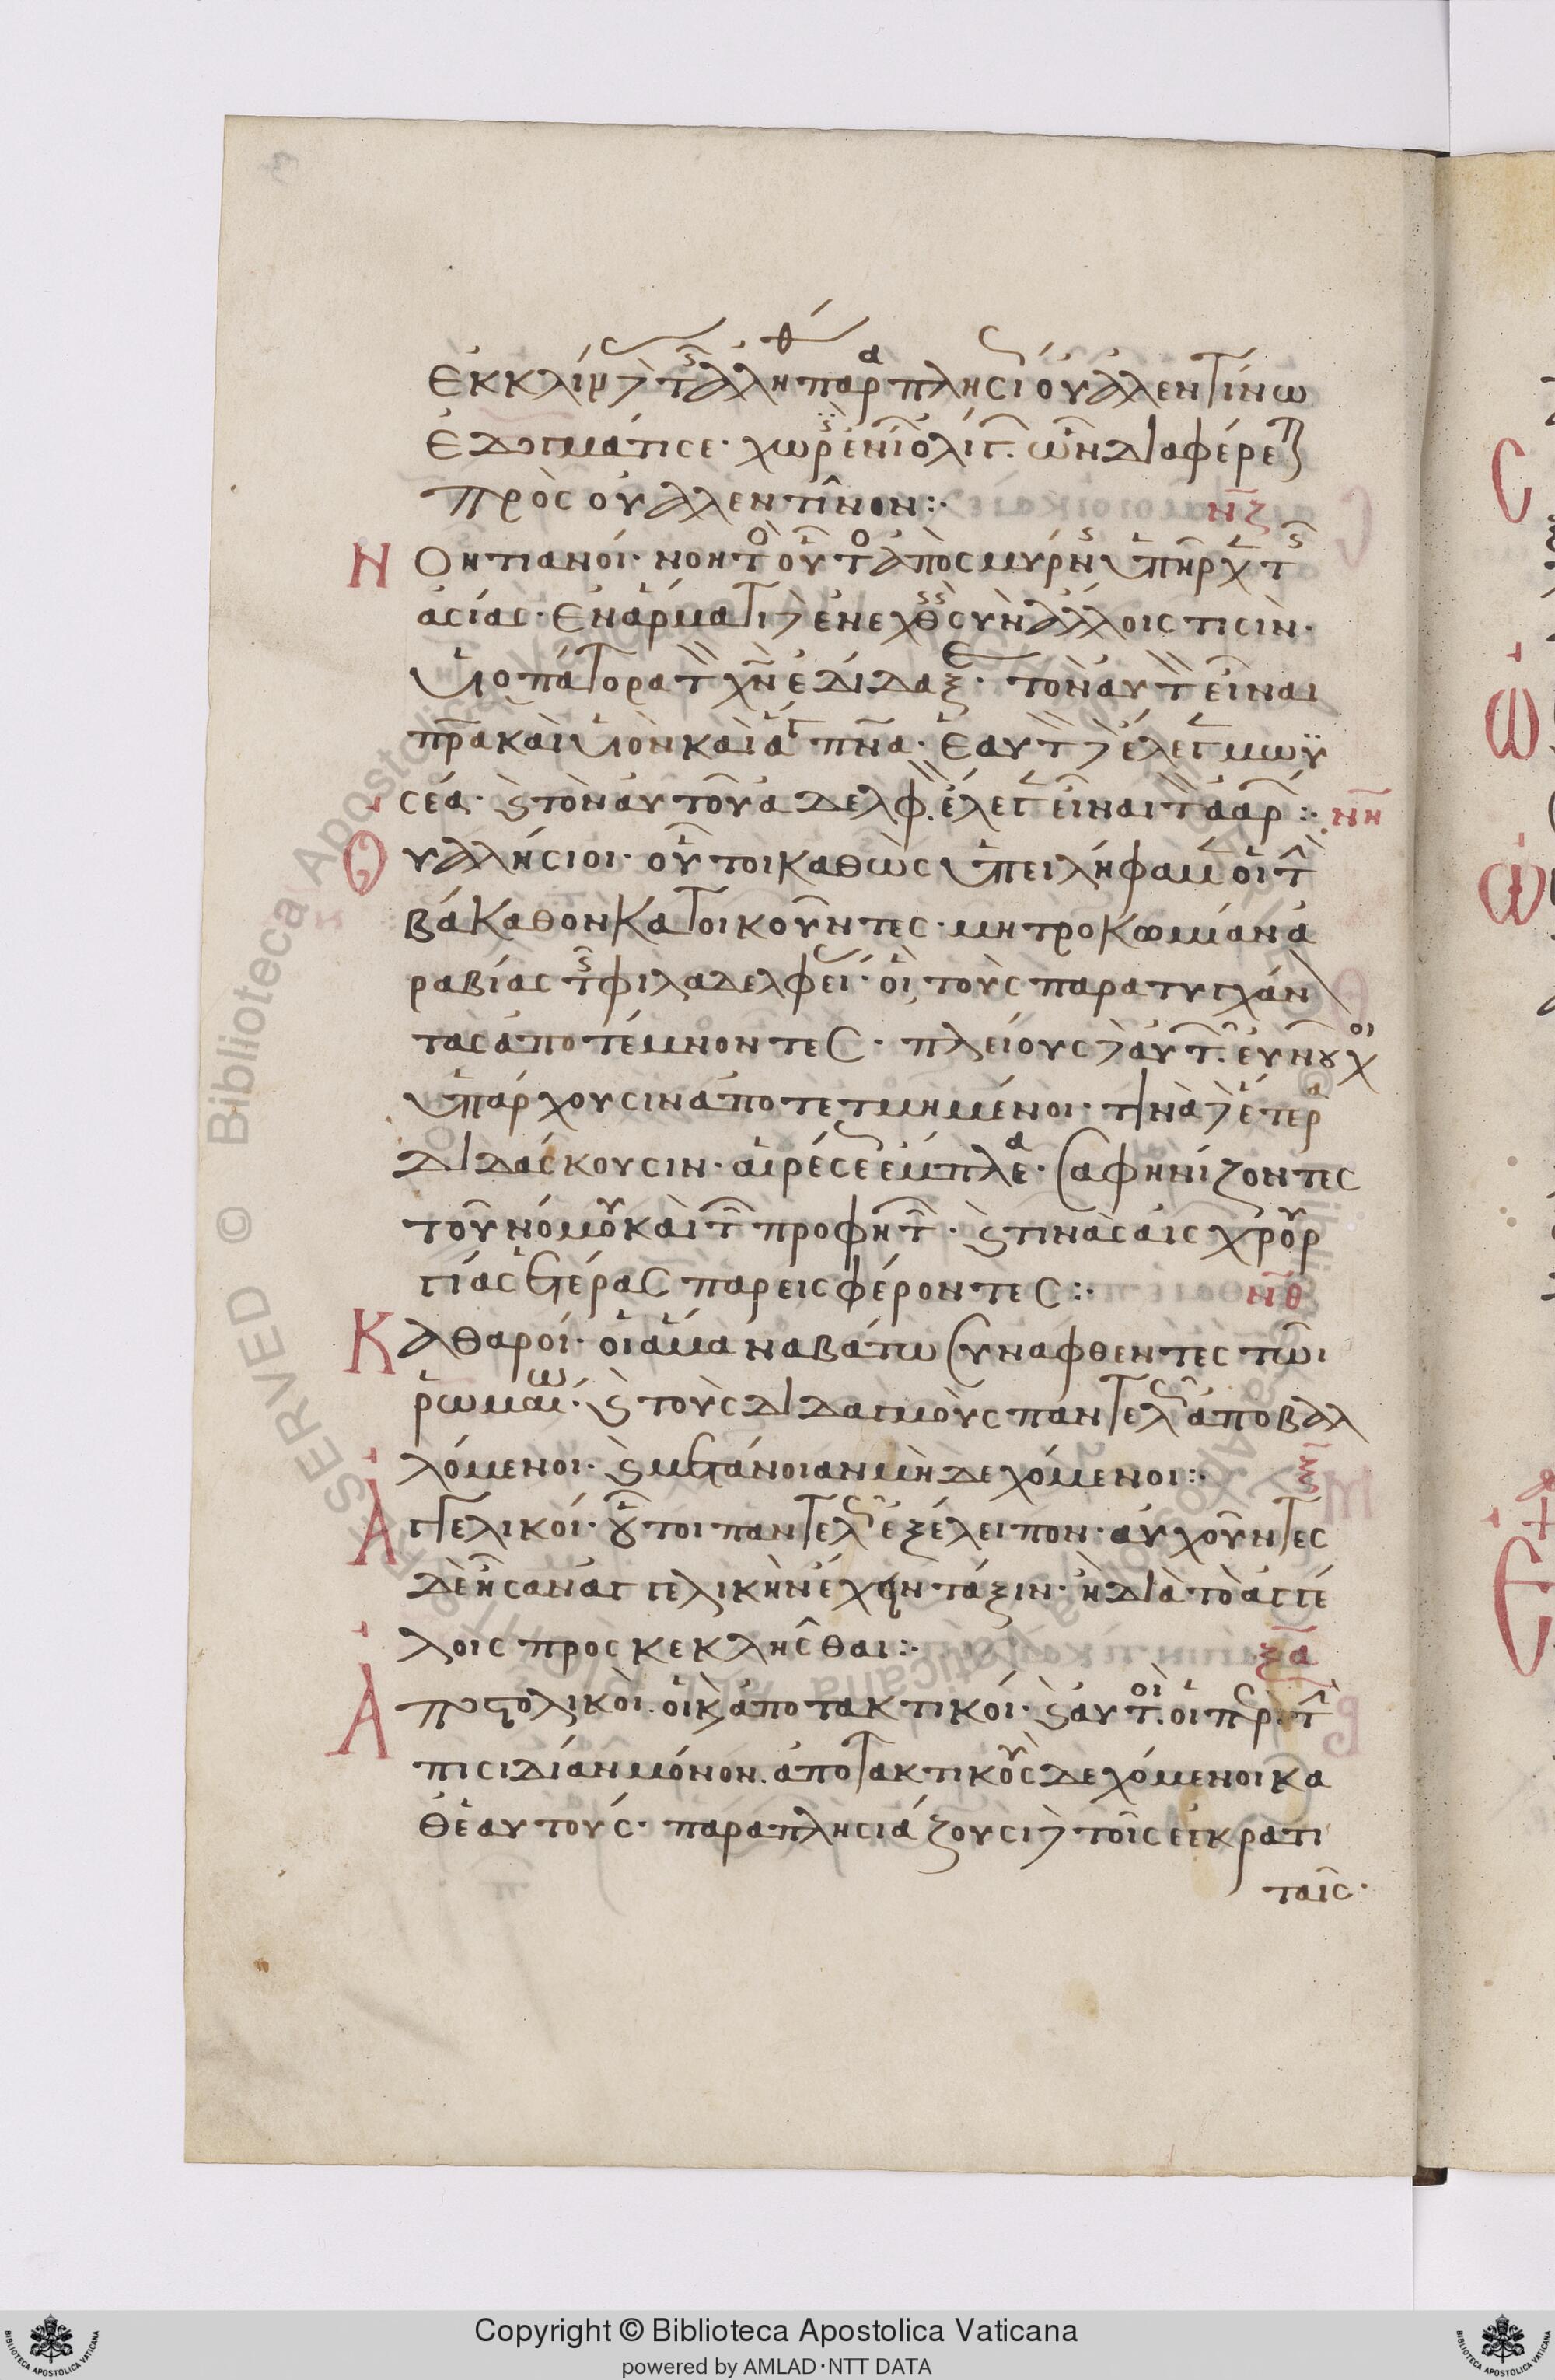 ἐκκλίνας δὲ τῆς ἀληθείας παραπλησίως οὐαλεντίνω
ἐδογμάτισε· χωρὶς ἐνίων ὀλίγων. ὧν διαφέρεται
πρὸς οὐαλεντῖνον:·
νζ
Νοητιανοί· νοητὸς οὗτος ἀπὸ σμύρνης ὑπῆρχε τῆς
ἀσίας· ἐν ἅρματι δὲ ἐνεχθεὶς σὺν ἄλλοις τισὶν·
υἱοπάτορα τὸν χν ἐδίδαξεν· τὸν αὐτὸν εἶναι
πρα καὶ υἱὸν καὶ ἅγιον πνα· ἑαυτὸν δὲ ἔλεγε μωϋ
σέα· καὶ τὸν αὐτοῦ ἀδελφὸν. ἔλεγεν εἶναι τὸν ἀαρών:·
νη
Οὐαλήσιοι· οὗτοι καθὼς ὑπειλήφαμεν οἱ τὴν
βάκαθον κατοικοῦντες· μητροκωμίαν ἀ
ραβίας τῆς φιλαδελφείας· οἳ τοὺς παρατυγχάνον
τας ἀποτέμνοντες· πλείους δὲ αὐτῶν. εὐνοῦχοι
ὑπάρχουσιν ἀποτετμημένοι· τινὰ δὲ ἕτερα
διδάσκουσιν· αἱρέσεως ἔμπλεα· ἀφηνίζοντες
τοῦ νόμου καὶ τῶν προφητῶν· καὶ τινὰς αἰσχρουρ
γίας ἑτέρας παρεισφέροντες:·
νθ
Καθαροί· οἱ ἅμα ναβάτω συναφθέντες τῶι
ῥωμαίω· καὶ τοὺς διδαγμοὺς παντελῶς ἀποβαλ
λόμενοι· καὶ μετάνοιαν μὴ δεχόμενοι:·
ξ
Ἀγγελικοί· οὗτοι παντελῶς ἐξέλειπον· αὐχοῦντες
δὲ ἦσαν ἀγγελικὴν ἔχειν τάξιν· ἢ διὰ τὸ ἀγγέ
λοις προσκεκλῆσθαι:·
ξα
Ἀποστολικοὶ. οἱ καὶ ἀποτακτικοί· καὶ αὐτοὶ. οἱ περὶ τὴν
πισιδίαν μόνον. ἀποτακτικοὺς δεχόμενοι κα
θ' ἑαυτούς· παραπλησιάζουσι δὲ τοῖς ἐγκρατι
ταῖς·
Copyright © Biblioteca Apostolica Vaticana
powered by AMLAD·NTT DATA